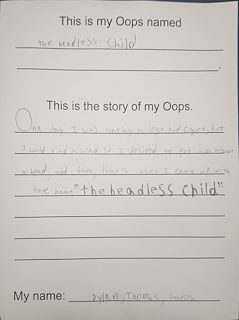 This is my Oops named
the headless Child
This is the story of my Oops.
One day I was making a lego kid figure, but
I could find a head so I desided to put
a head, and then that's when I came up with
the name "the headless Child"
My name: Dylan, Thomas,